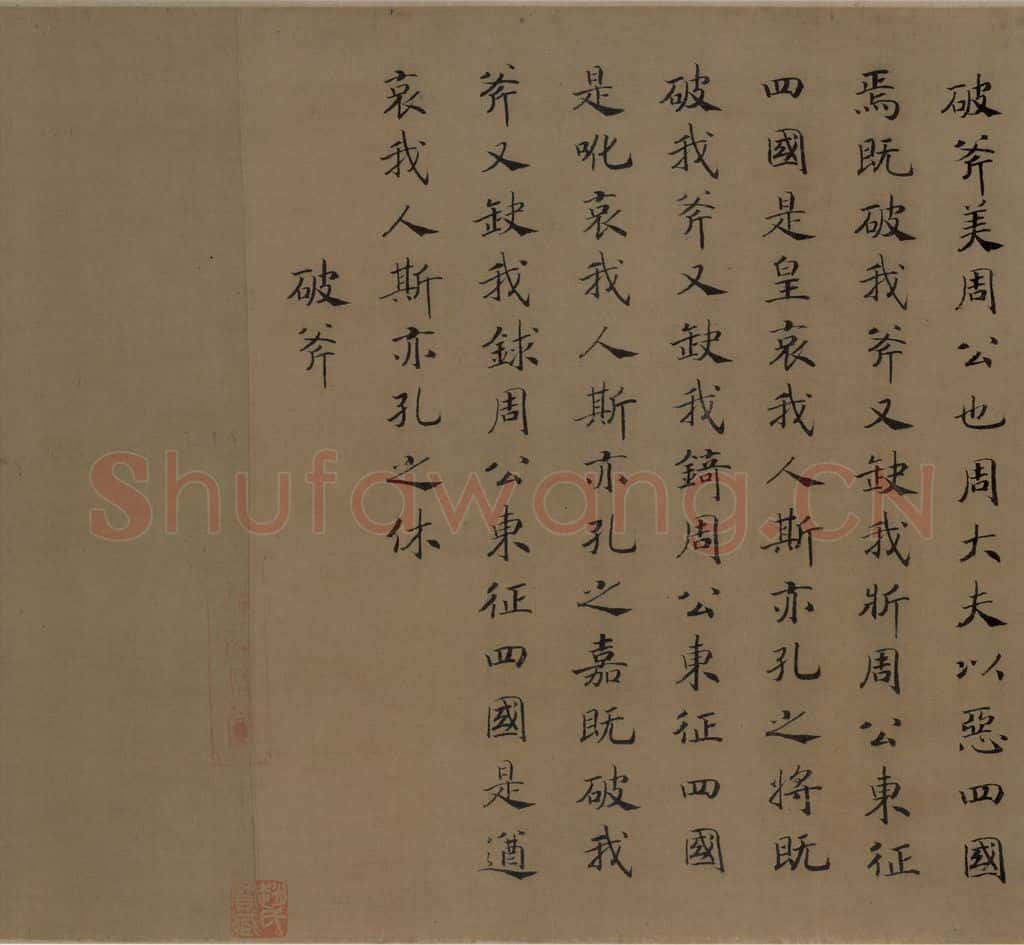 破斧美周公也周大夫以惡四國
焉既破我斧又缺我斨周公東征
四國是皇哀我人斯亦孔之將既
破我斧又缺我錡周公東征四國
是吪哀我人斯亦孔之嘉既破我
斧又缺我銶周公東征四國是遒
哀我人斯亦孔之休
破斧
Shufawang.CN